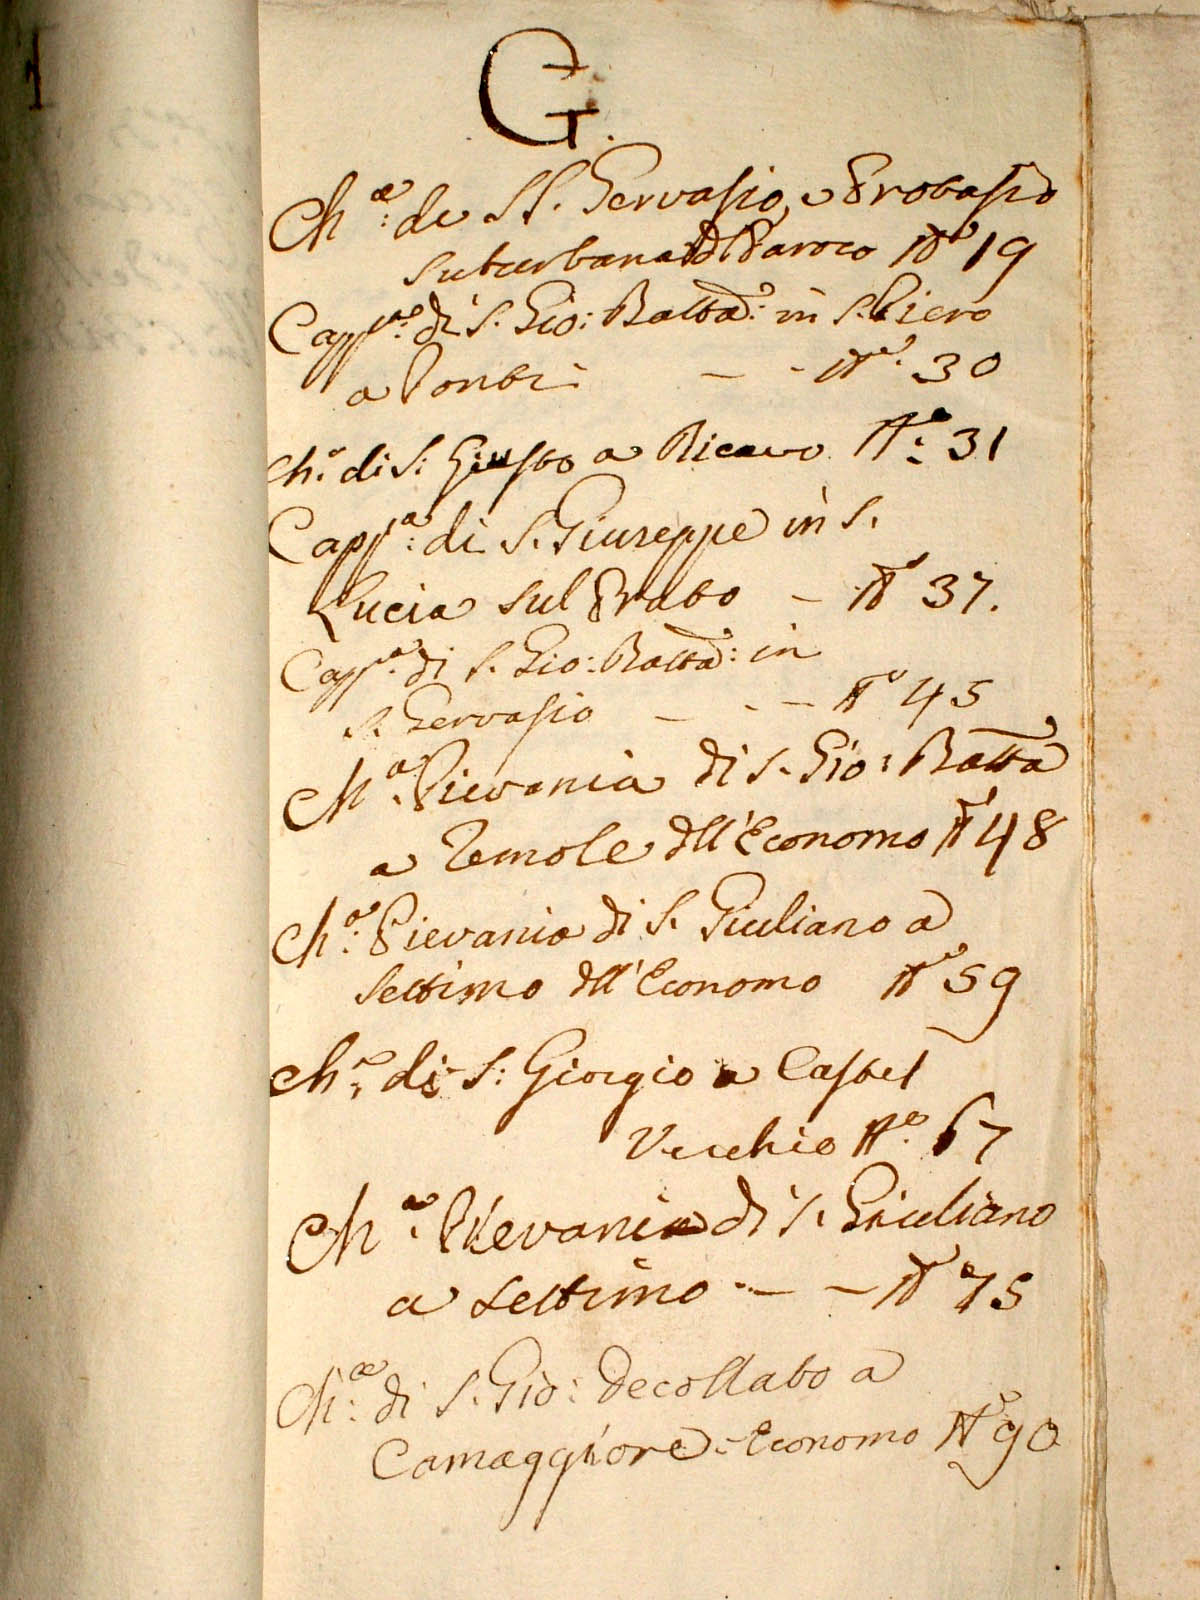 G.
Ch.ª de SS. Gervasio, e Protasio
suburbana del Paroco N.º 19
Capp.ª di S. Gio: Batta: in S. Piero
a Ponti - - N.º 30
Ch.ª di S: Giusto a Ricavo N.º 31
Capp.ª di S. Giuseppe in S.
Lucia sul Prato - N.º 37.
Capp.ª di S. Gio: Batta: in
S. Gervasio - - - N.º 45
Ch.ª Pievania di S. Gio: Batta
a Remole dell'Economo N.º 48
Ch.ª Pievania di S. Giuliano a
Settimo dell'Economo N.º 59
Ch.ª di S: Giorgio a Castel
Vecchio N.º 67
Ch.ª Pievania di S. Giuliano
a Settimo - - N.º 75
Ch.ª di S. Gio: Decollato a
Camaggiore - Economo N.º 90